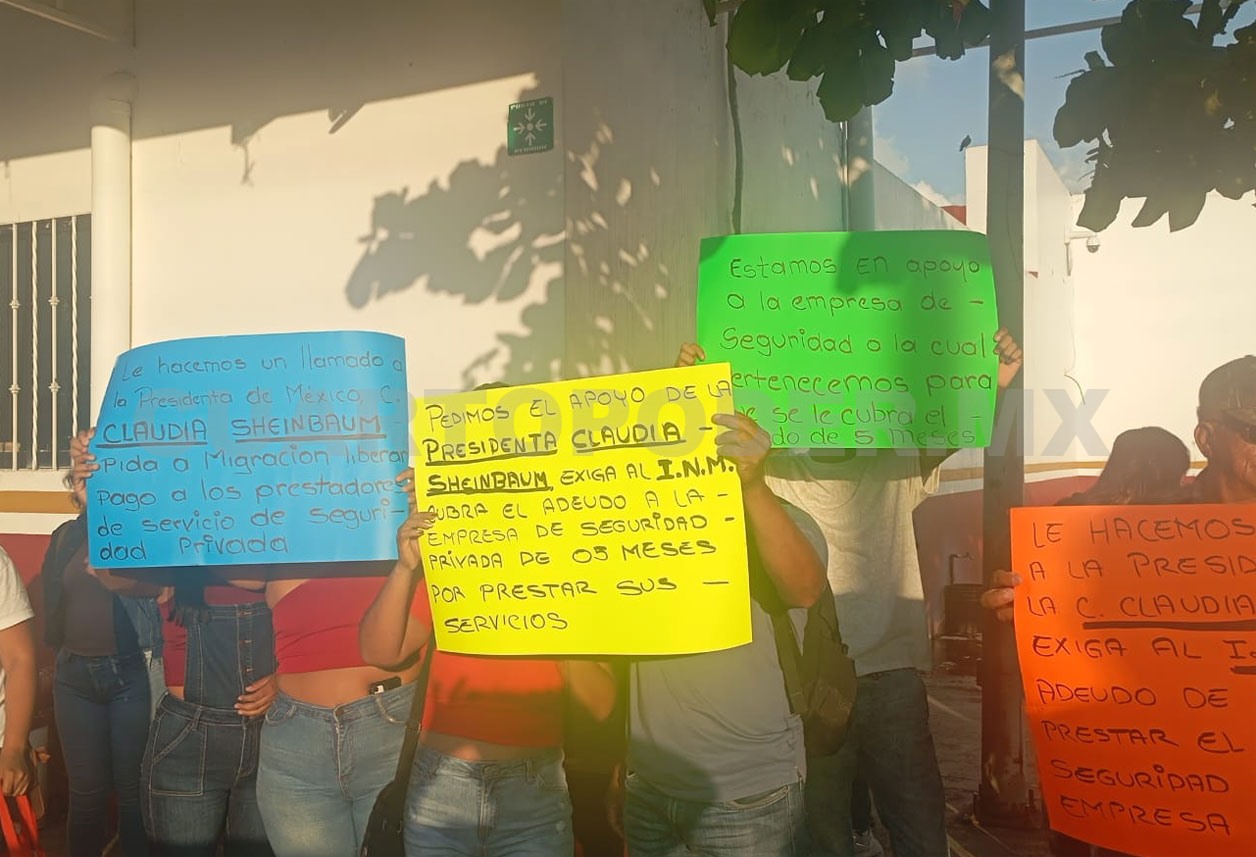 PUNTO DE
REUNION
Le hacemos un llamado a
la Presidenta de México, C.
CLAUDIA SHEINBAUM -
pida a Migración liberar
Pago a los prestadores
de servicio de Seguri-
dad Privada
PEDIMOS EL APOYO DE LA
PRESIDENTA CLAUDIA -
SHEINBAUM, EXIGA AL I.N.M.
UBRA EL ADEUDO A LA -
EMPRESA DE SEGURIDAD -
PRIVADA DE 05 MESES
POR PRESTAR SUS -
SERVICIOS
Estamos EN apoyo
a la empresa de -
Seguridad a la cual
ertenecemos para
e se le cubra el -
do de 5 meses
LE HACEMOS
A LA PRESID
LA C. CLAUDIA
EXIGA AL I.
ADEUDO DE
PRESTAR EL
SEGURIDAD
EMPRESA
CUARTOPODER.MX